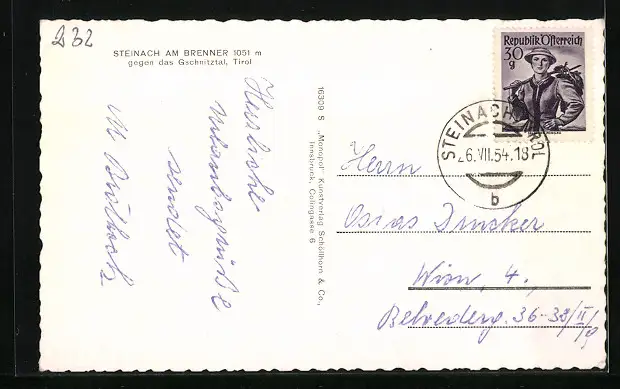 232
STEINACH AM BRENNER 1051 m
gegen das Gschnitztal, Tirol
Herzliche
Urlaubsgrüße
sendet
16309 S „Monopol" Kunstverlag Schöllhorn & Co.,
Innsbruck, Colingasse 6
Republik Österreich
30
g
STEINACH TIROL
26.VII.54.18
b
Herrn
Osias Drucker
Wien, 4.
Belvederg. 36-38/II/9